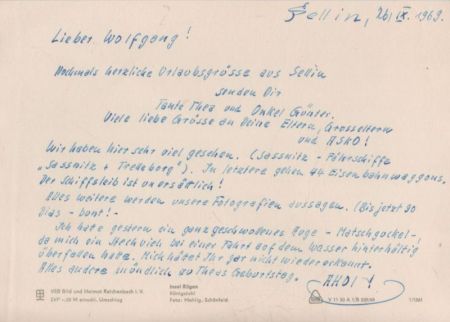 Sellin, 26. IX. 1969.
Lieber Wolfgang!
Nochmals herzliche Urlaubsgrüsse aus Sellin
senden Dir
Tante Thea und Onkel Günter.
Viele liebe Grüsse an Deine Eltern, Grosseltern
und ASKO!
Wir haben hier sehr viel gesehen. (Sassnitz - Fährschiffe
„Sassnitz + Trelleborg"). In letztere gehen 44 Eisenbahnwaggons.
Der Schiffsleib ist unersättlich!
Alles weitere werden unsere Fotografien aussagen. (Bis jetzt 90
Dias - bunt! -
Ich hatte gestern ein ganz geschwollenes Auge - Matschgockel -!
da mich ein Mechvieh bei einer Fahrt auf dem Wasser hinterhältig
überfallen hatte. Mich hätet Ihr gar nicht wiedererkannt.
Alles andere mündlich zu Theas Geburtstag.
AHOI!
VEB Bild und Heimat Reichenbach i. V.
Insel Rügen
Königsstuhl
Foto: Mehlig, Schönfeld